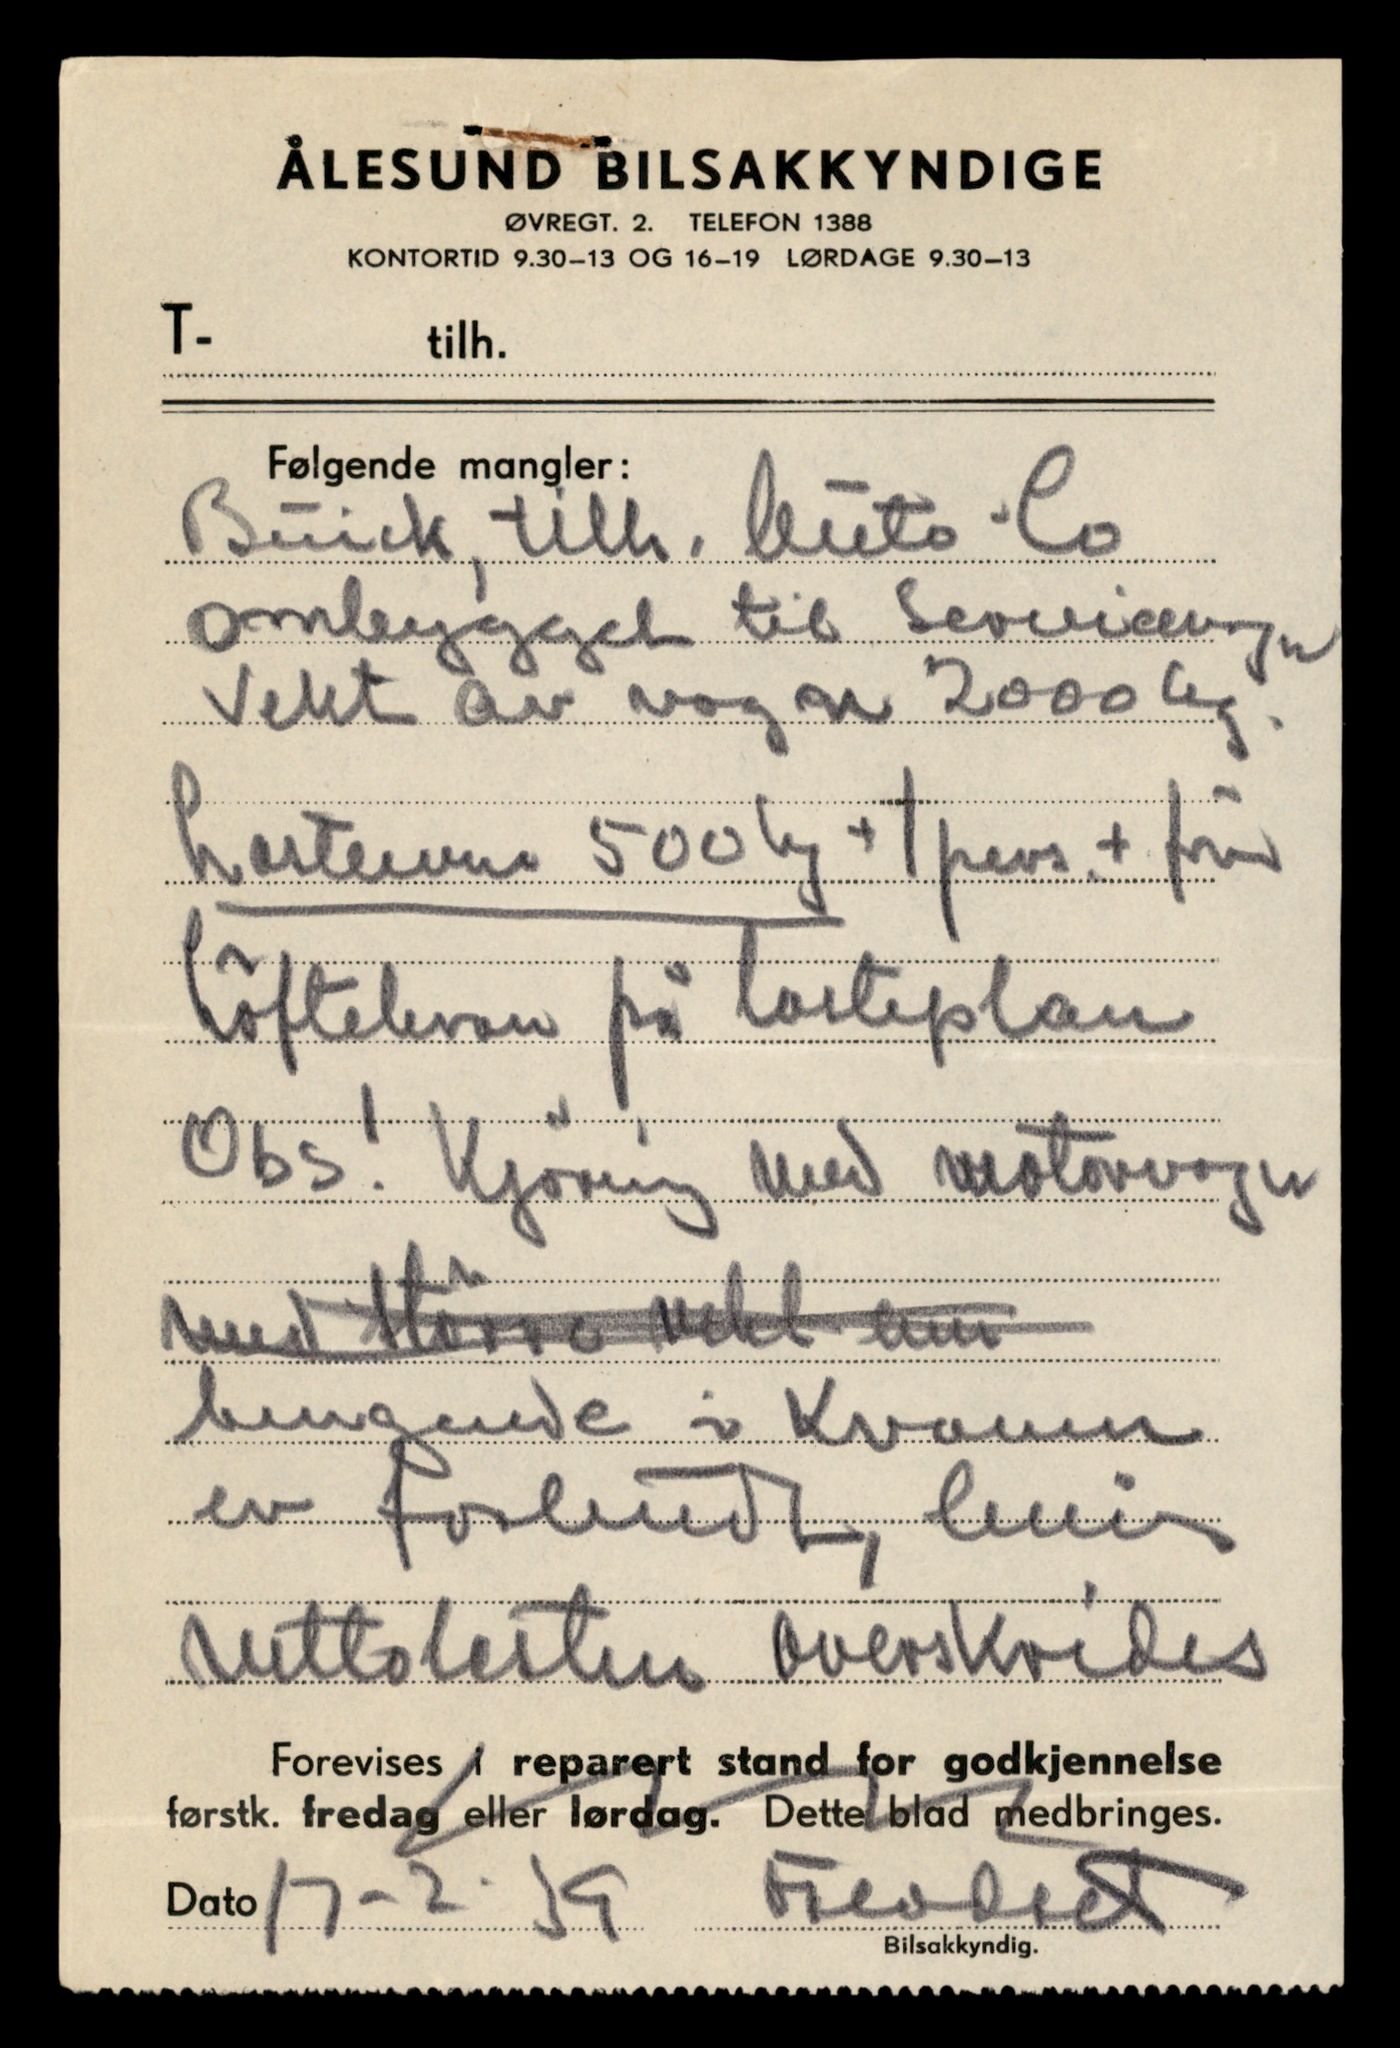 ÅLESUND BILSAKKYNDIGE
ØVREGT. 2. TELEFON 1388
KONTORTID 9.30–13 OG 16–19 LØRDAGE 9.30–13
T- tilh.
Følgende mangler:
Buick, tilh. Auto-Co
ombygget til Servicevogn
Vekt av vogn 2000 kg.
Lasteevne 500 kg + 1 pers. + før
Löftekran på lasteplan
Obs! Kjöring med motorvogn
med större vekt enn
hengende i Kranen
er forbudt, hvis
nettolasten overskrides
Forevises i reparert stand for godkjennelse
førstk. fredag eller lørdag. Dette blad medbringes.
Dato 17-2-59
Bilsakkyndig.